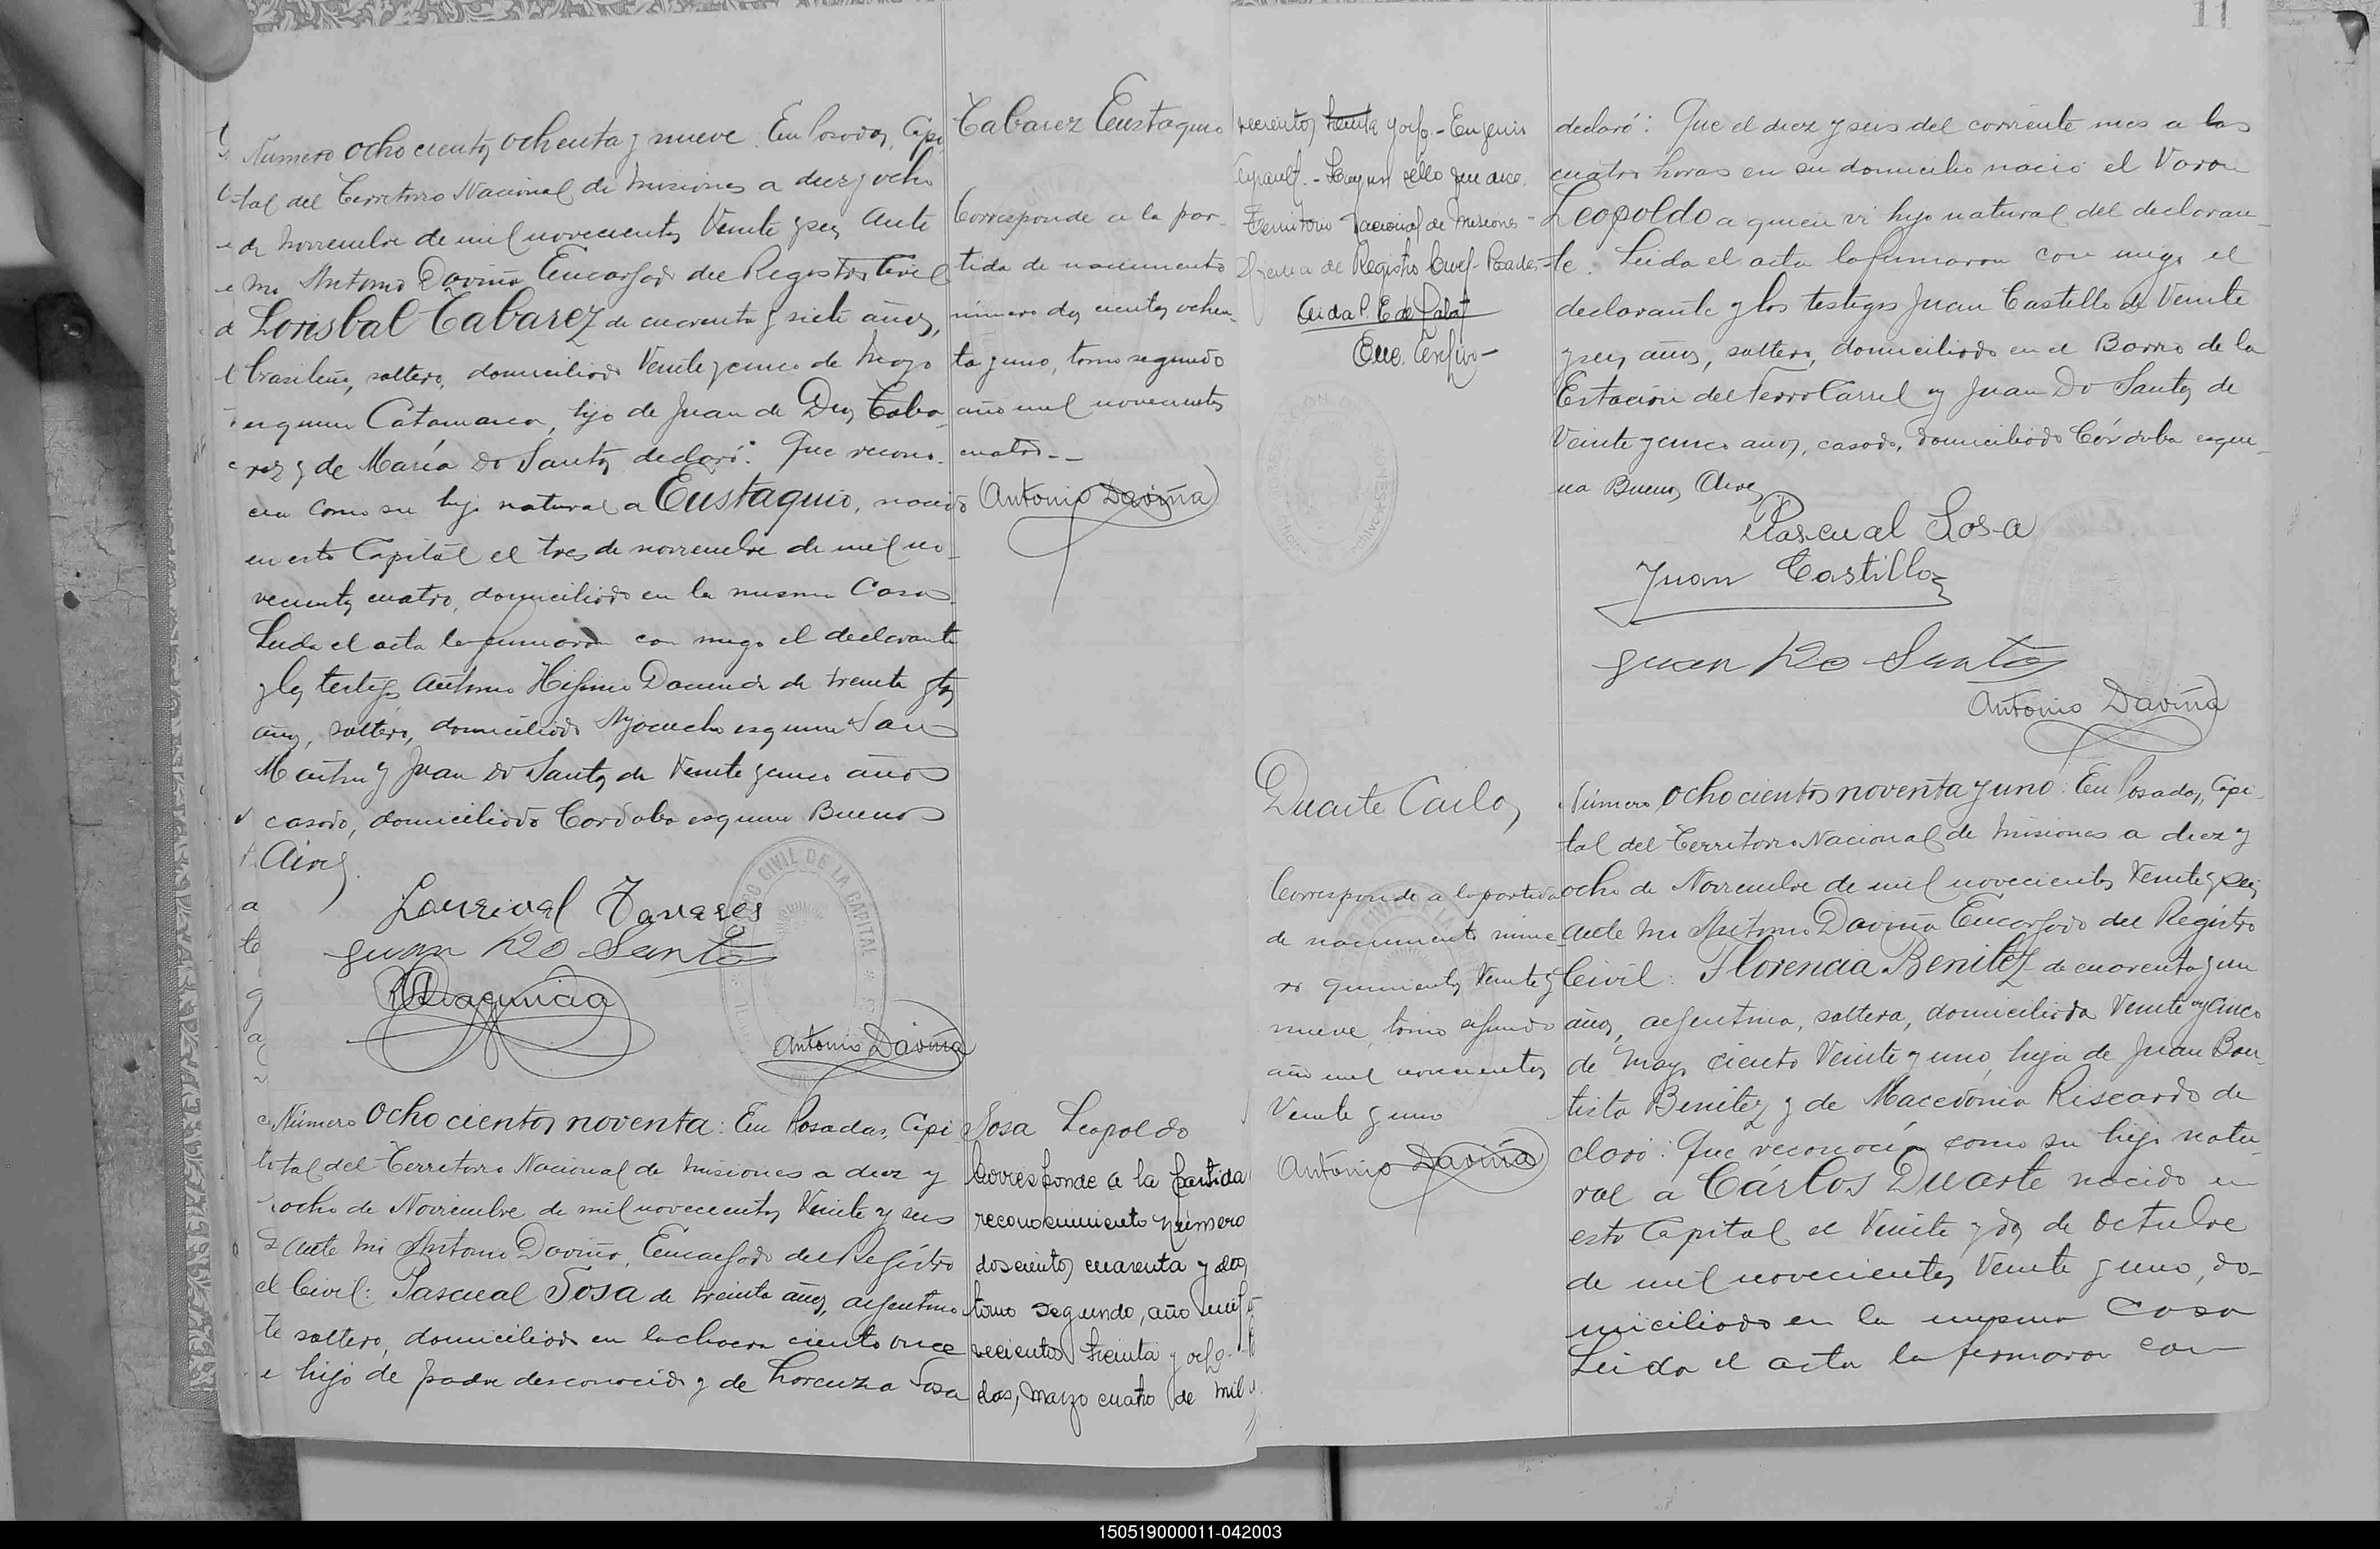 Número ochocientos ochenta y nueve. En Posadas, Capi
tal del Territorio Nacional de Misiones a diez y ocho
de Noviembre de mil novecientos Veinte y seis Ante
mi Antonio Daviña Encargado del Registro Civil
Lorisbal Tabarez de cuarenta y siete años,
brasileño, soltero, domiciliado Veinte y cinco de Mayo
esquina Catamarca, hijo de Juan de Dios Taba
rez y de María Do Santos declaró: Que recono
cia como su hijo natural a Eustaquio, nacido
en esta Capital el tres de noviembre de mil no
vecientos cuatro, domiciliado en la misma Casa
Leida el acta la firmaron con migo el declarante
y los testigos Antonio Higinio de treinta y tres
años, soltero, domiciliado Ayacucho esquina San
Martin y Juan Do Santos de Veinte y cinco años
casado, domiciliado Cordoba esquina Buenos
Aires.
Lourival Tavares
Juan Do Santos
Antonio Daviña
REGISTRO CIVIL DE LA CAPITAL
Tabarez Eustaquio
Corresponde a la par
tida de nacimiento
número dos cientos ochen
ta y uno, tomo segundo
año mil novecientos
cuatro--
Antonio Daviña
Número ochocientos noventa: En Posadas, Capi
tal del Territorio Nacional de Misiones a diez y
ocho de Noviembre de mil novecientos Veinte y seis
Ante mi Antonio Daviña, Encargado del Registro
Civil: Pascual Sosa de treinta años, argentino
soltero, domiciliado en la chacra ciento once
hijo de padre desconocido y de Lorenza Sosa
Sosa Leopoldo
Corresponde a la partida
reconocimiento número
doscientos cuarenta y dos
tomo segundo, año mil
vecientos treinta y ocho.-
das, marzo cuatro de mil
vecientos treinta y ocho.- Eugenio
- Hay un sello que dice.
Territorio Nacional de Misiones -
Oficina de Registro Civil-
Aida P. E. de
Declaró: Que el diez y seis del corriente mes a las
cuatro horas en su domicilio nació el Varon
Leopoldo a quien vi hijo natural del declaran
te. Leida el acta la firmaron con migo el
declarante y los testigos Juan Castillo de Veinte
y seis años, soltero, domiciliado en el Barrio de la
Estación del Ferro Carril y Juan Do Santos de
Veinte y cinco años, casado, domiciliado Córdoba esqui
na Buenos Aires
Pascual Sosa
Juan Castillo
Juan Do Santos
Antonio Daviña
Duarte Carlos
Corresponde a la partida
de nacimiento núme
ro quinientos Veinte y
nueve, tomo segundo
año mil novecientos
Veinte y uno
Antonio Daviña
Número ochocientos noventa y uno: En Posadas, Capi
tal del Territorio Nacional de Misiones a diez y
ocho de Noviembre de mil novecientos Veinte y seis
ante mi Antonio Daviña Encargado del Registro
Civil: Florencia Benitez de cuarenta y un
años, argentina, soltera, domiciliada Veinte y cinco
de Mayo ciento Veinte y uno, hija de Juan Bau
tista Benitez y de Macedonia Riscardo de
claró: Que reconocía como su hijo natu
ral a Cárlos Duarte nacido en
esta Capital el Veinte y dos de Octubre
de mil novecientos Veinte y uno, do-
miciliado en la misma Casa
Leida el acta la firmaron con
150519000011-042003